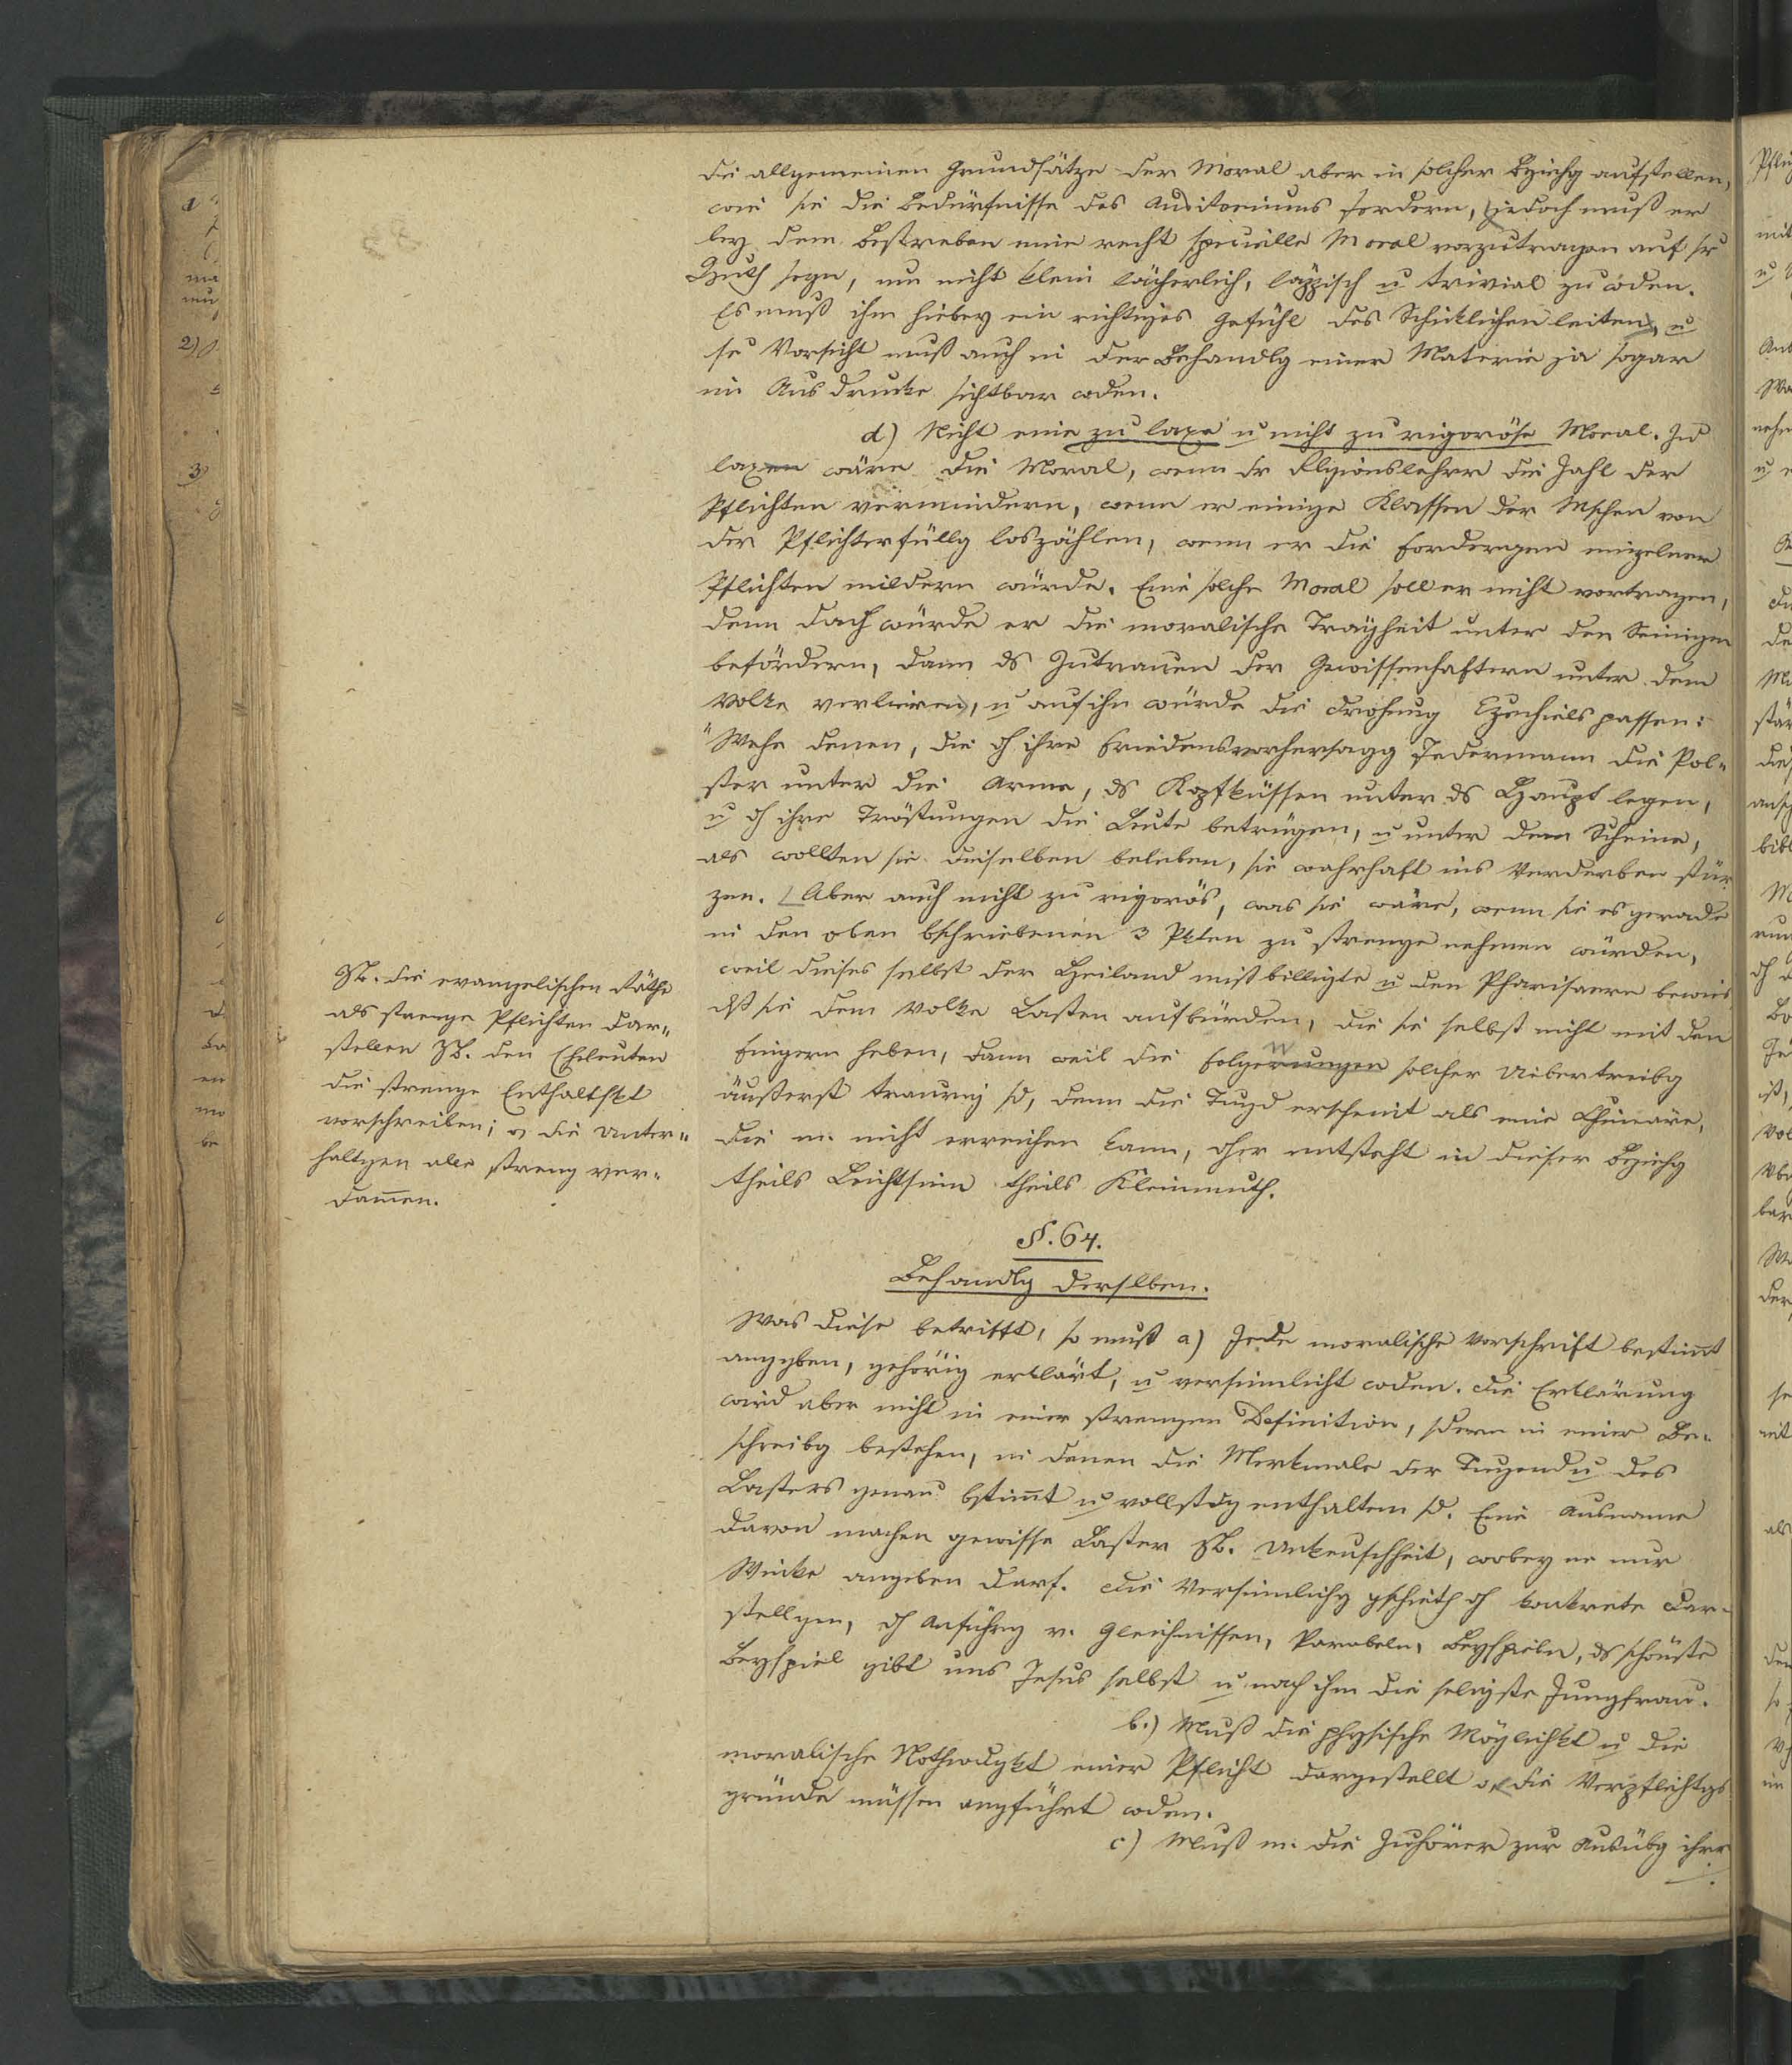 die allgemeinen Grundsätze der Moral aber in solcher Bziehg aufstellen,
wie sie die Bedürfnisse des Auditoriums fordern, jedoch muß er
bey dem Bestreben eine recht specielle Moral vorzutragen auf sr
Huth seyn, um nicht klein lächerlich, läppisch u trivial zu wden.
Es muß ihn hiebey ein richtiges Gefühl des Schicklichen leiten, u
se Vorsicht muß auch in der Behandlg einer Materie ja sogar
im Ausdrucke sichtbar wden.
d) Nicht eine zu laxe u nicht zu rigoröse Moral. Zu
laxen wäre die Moral, wenn dr Rlgionslehrer die Zahl der
Pflichten vermindern, wenn er einige Klassen der Mschen von
der Pflichterfüllg loszählen, wenn er die Fordergen einzelner
Pflichten mildern würde. Eine solche Moral soll er nicht vortragen,
denn dadh würde er die moralische Trägheit unter den Seinigen
befördern, dann ds Zutrauen der Gewissenhaftern unter dem
Volke verlieren, u auf ihn würde die Drohung Ezechiels passen:
"Wehe denen, die dh ihre Friedensvorhersagg Jedermann die Pol-
ster unter die Arme, ds Kopfküssen unter ds Haupt legen,
u dh ihre Tröstungen die Leute betrügen, u unter dem Scheine,
als wollten sie dieselben beleben, sie wahrhaft ins Verderben stür
zen. Aber auch nicht zu rigorös, was sie wäre, wenn sie es gerade
in den oben bschriebenen 3 Pkten zu strenge nehmen würden,
weil dieses selbst der Heiland mißbilligte u den Pharisaern bewies
dß sie dem Volke Lasten aufbürden, die sie selbst nicht mit den
Fingern heben, dann weil die Folgerungen solcher Uebertreibg
äußerst traurig sd, denn die Tugd erscheint als eine Chimäre,
die m. nicht erreichen kann, dher entsteht in dieser Bziehg
theils Leichtsinn theils Kleinmuth.
ZB. die evangelischen Räthe
als strenge Pflichten dar-
stellen ZB. den Eheleuten
die strenge Enthaltskt
vorschreiben; o die Unter-
haltgen alle streng ver-
dam̄en.
§. 64.
Behandlg derslben.
Was diese betrifft, so muß a) Jede moralische Vorschrift bestim̄t
anggben, gehörig erklärt, u versinnlicht wden. Die Erklärung
wird aber nicht in einer strengen Definition, sdern in einer Be-
schreibg bestehen, in denen die Merkmale der Tugend u des
Lasters genau bstim̄t u vollstdg enthalten sd. Eine Ausname
davon machen gewisse Laster ZB. Unkeuschheit, wobey er nur
Winke angeben darf. Die Versinnlichg gschieht dh konkrete Dar-
stellgen, dh Anführg v. Gleichnissen, Parabeln, Beyspieln, ds schönste
Beyspiel gibt uns Jesus selbst u nach ihm die seligste Jungfrau.
b.) Muß die physische Möglichkt u die
moralische Nothwdgkt einer Pflicht dargestellt o die Verpflichtgs
gründe müssen anggführt wden.
c) Muß m. die Zuhörer zur Ausübg ihrr